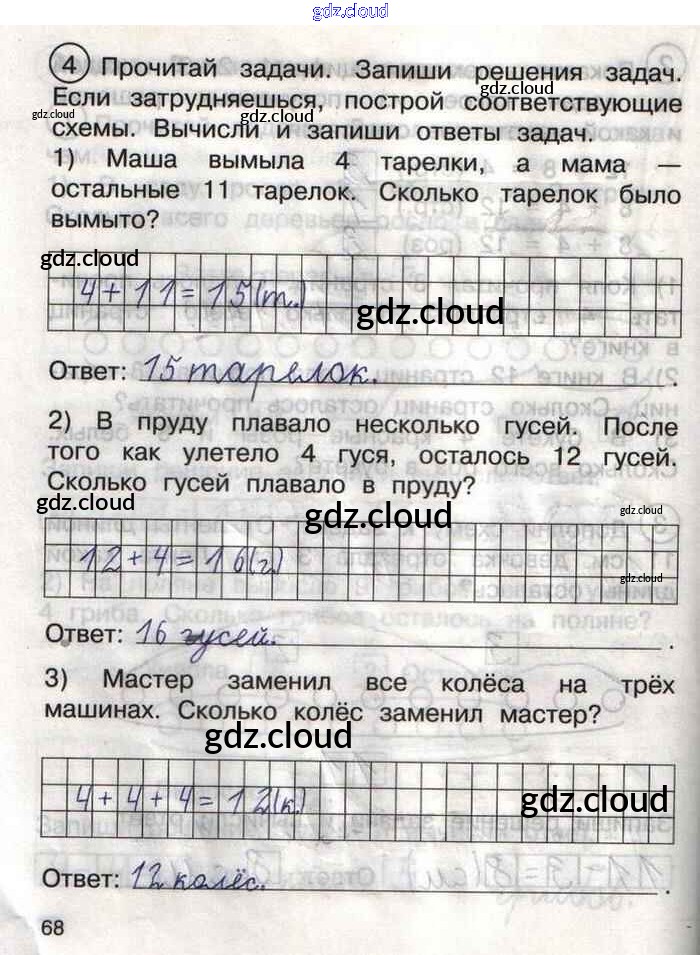 gdz.cloud
4 Прочитай задачи. Запиши решения задач.
gdz.cloud
Если затрудняешься, построй соответствующие
gdz.cloud
gdz.cloud
схемы. Вычисли и запиши ответы задач.
1) Маша вымыла 4 тарелки, а мама —
остальные 11 тарелок. Сколько тарелок было
вымыто?
gdz.cloud
4+11=15(т.)
gdz.cloud
Ответ: 15 тарелок.
2) В пруду плавало несколько гусей. После
того как улетело 4 гуся, осталось 12 гусей.
Сколько гусей плавало в пруду?
gdz.cloud
gdz.cloud
gdz.cloud
12+4=16(г.)
gdz.cloud
Ответ: 16 гусей.
3) Мастер заменил все колёса на трёх
машинах. Сколько колёс заменил мастер?
gdz.cloud
4+4+4=12(к.)
gdz.cloud
Ответ: 12 колёс.
68